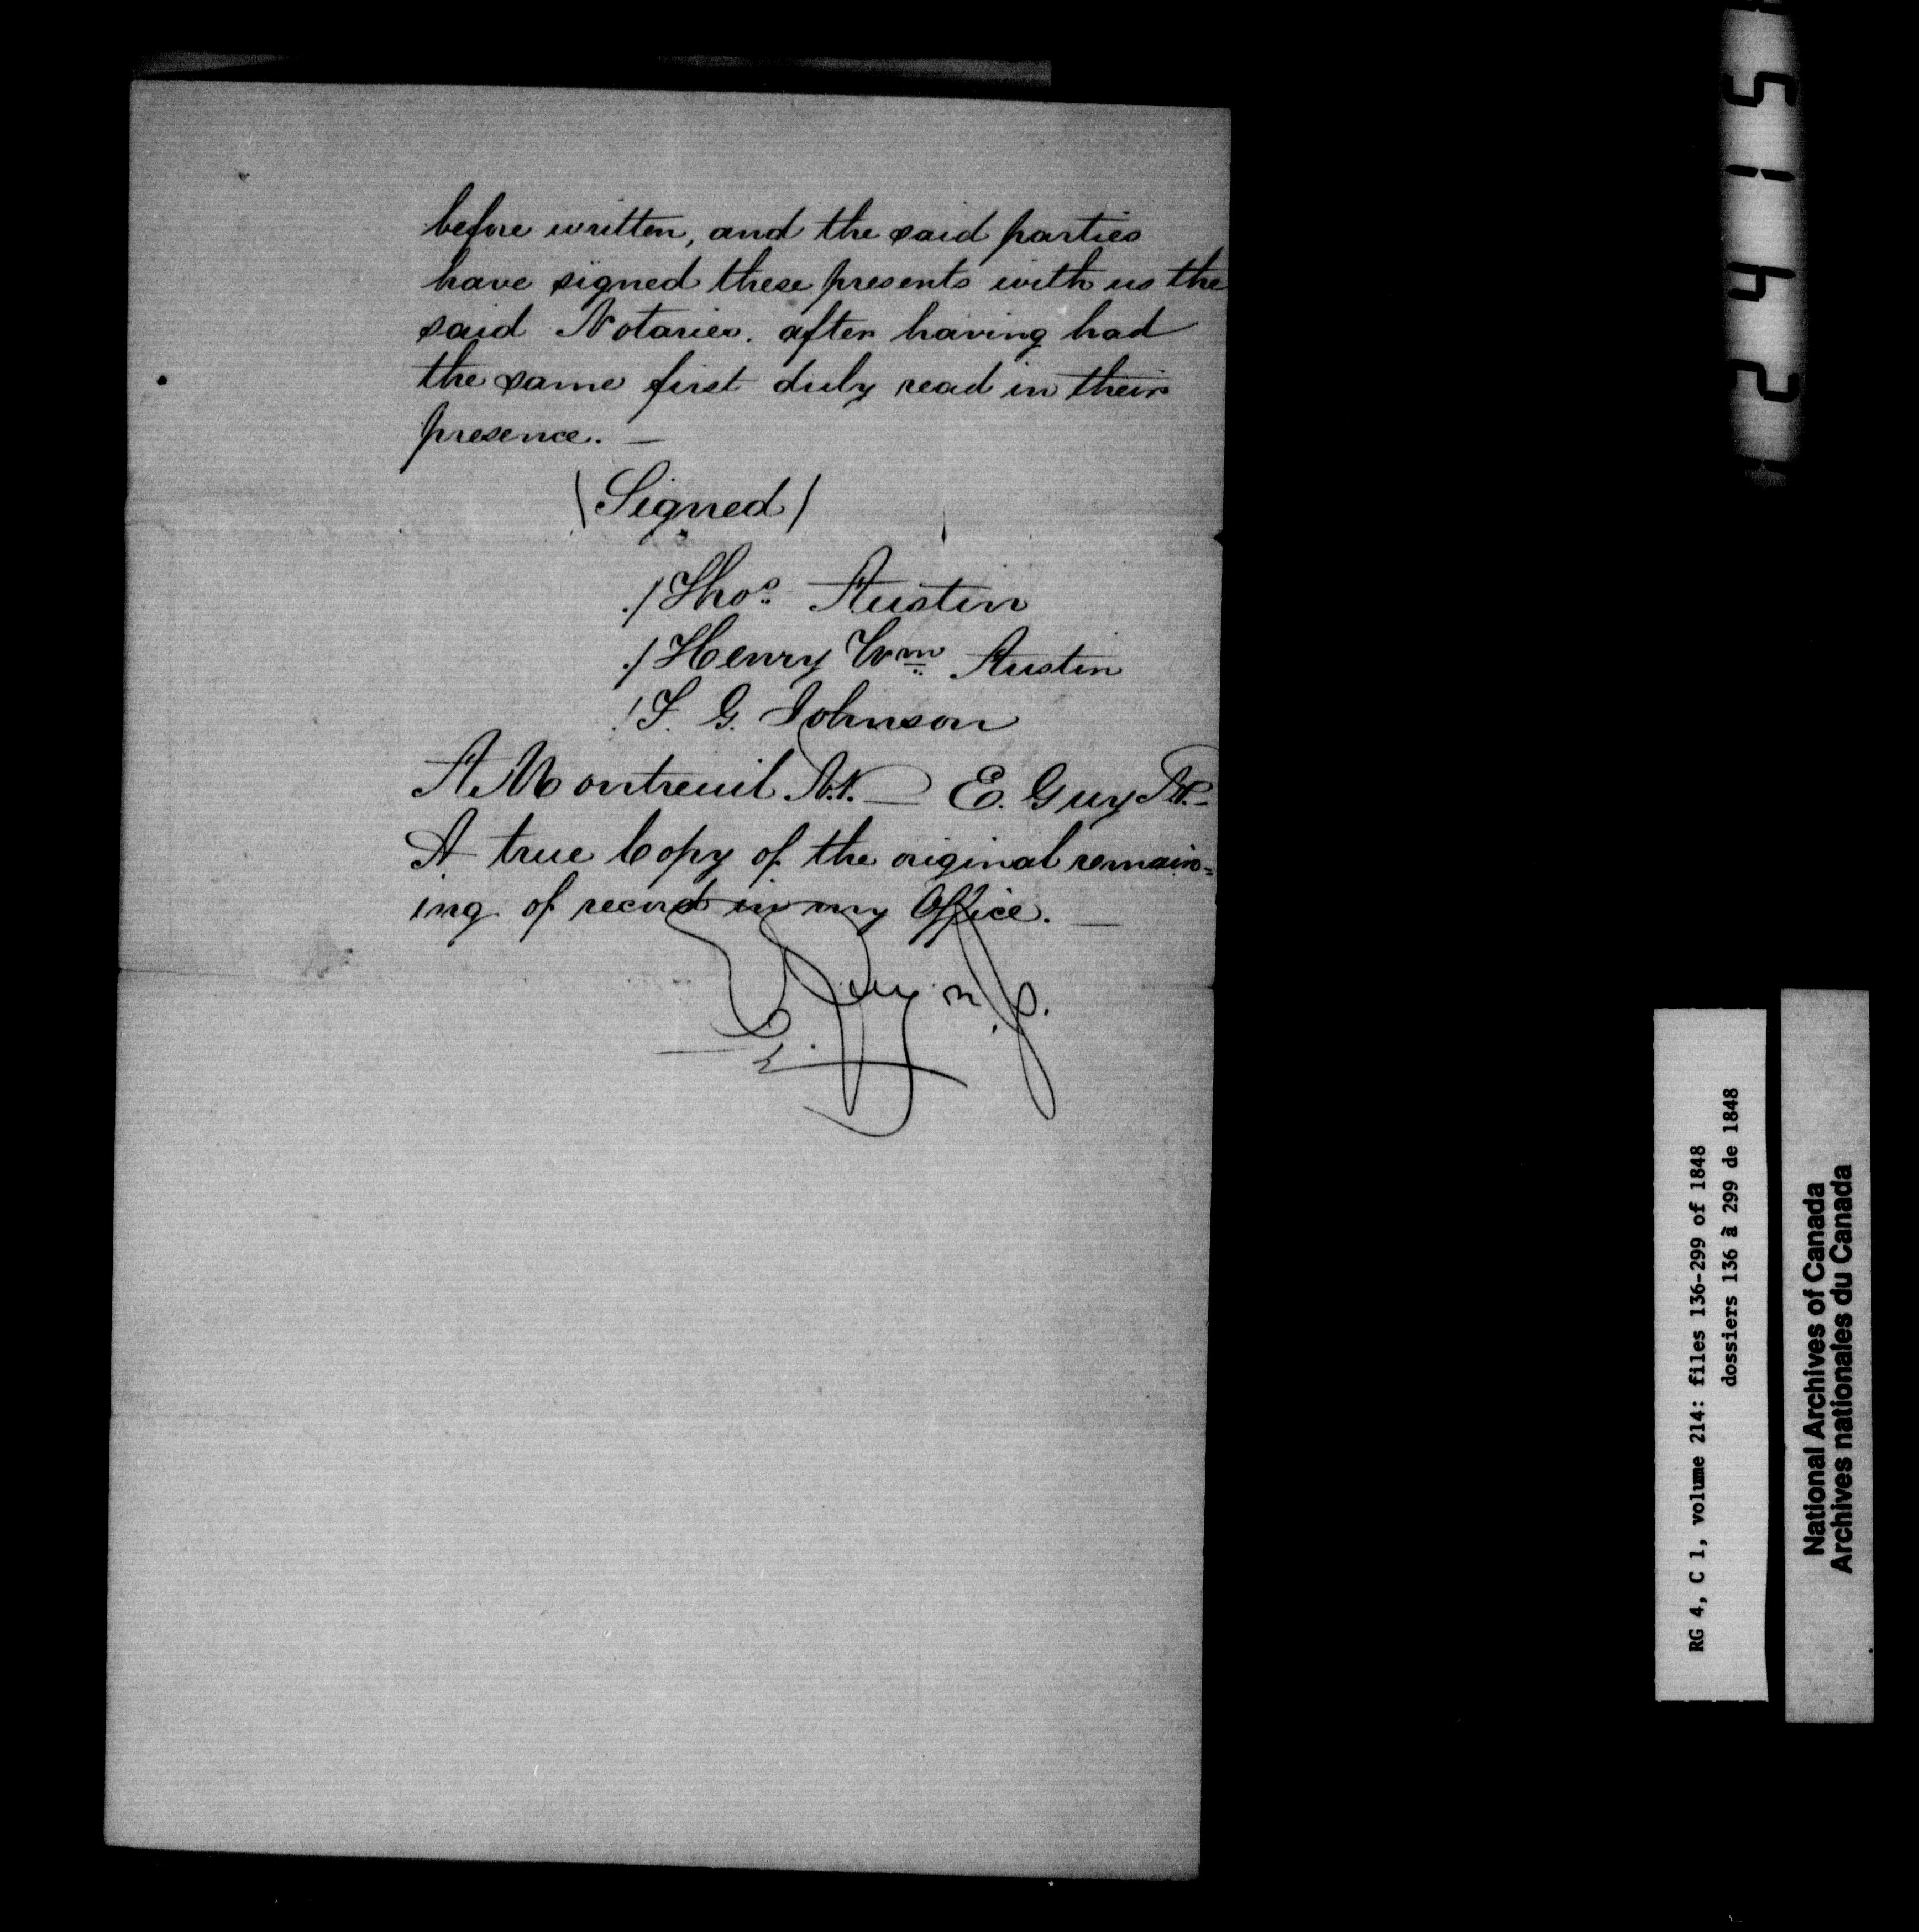 before written, and the said parties
have signed these presents with us the
said Notaries. after having had
the same first duly read in their
presence. —
(Signed)
./Thos. Austin
./Henry Wm. Austin
/T. G. Johnson
A. Montreuil N.P. — E. Guy N.P. -
A true Copy of the original remain=
ing of record in my Office. —
E. Guy n.p.
5142
RG 4, C 1, volume 214: files 136-299 of 1848
dossiers 136 à 299 de 1848
National Archives of Canada
Archives nationales du Canada